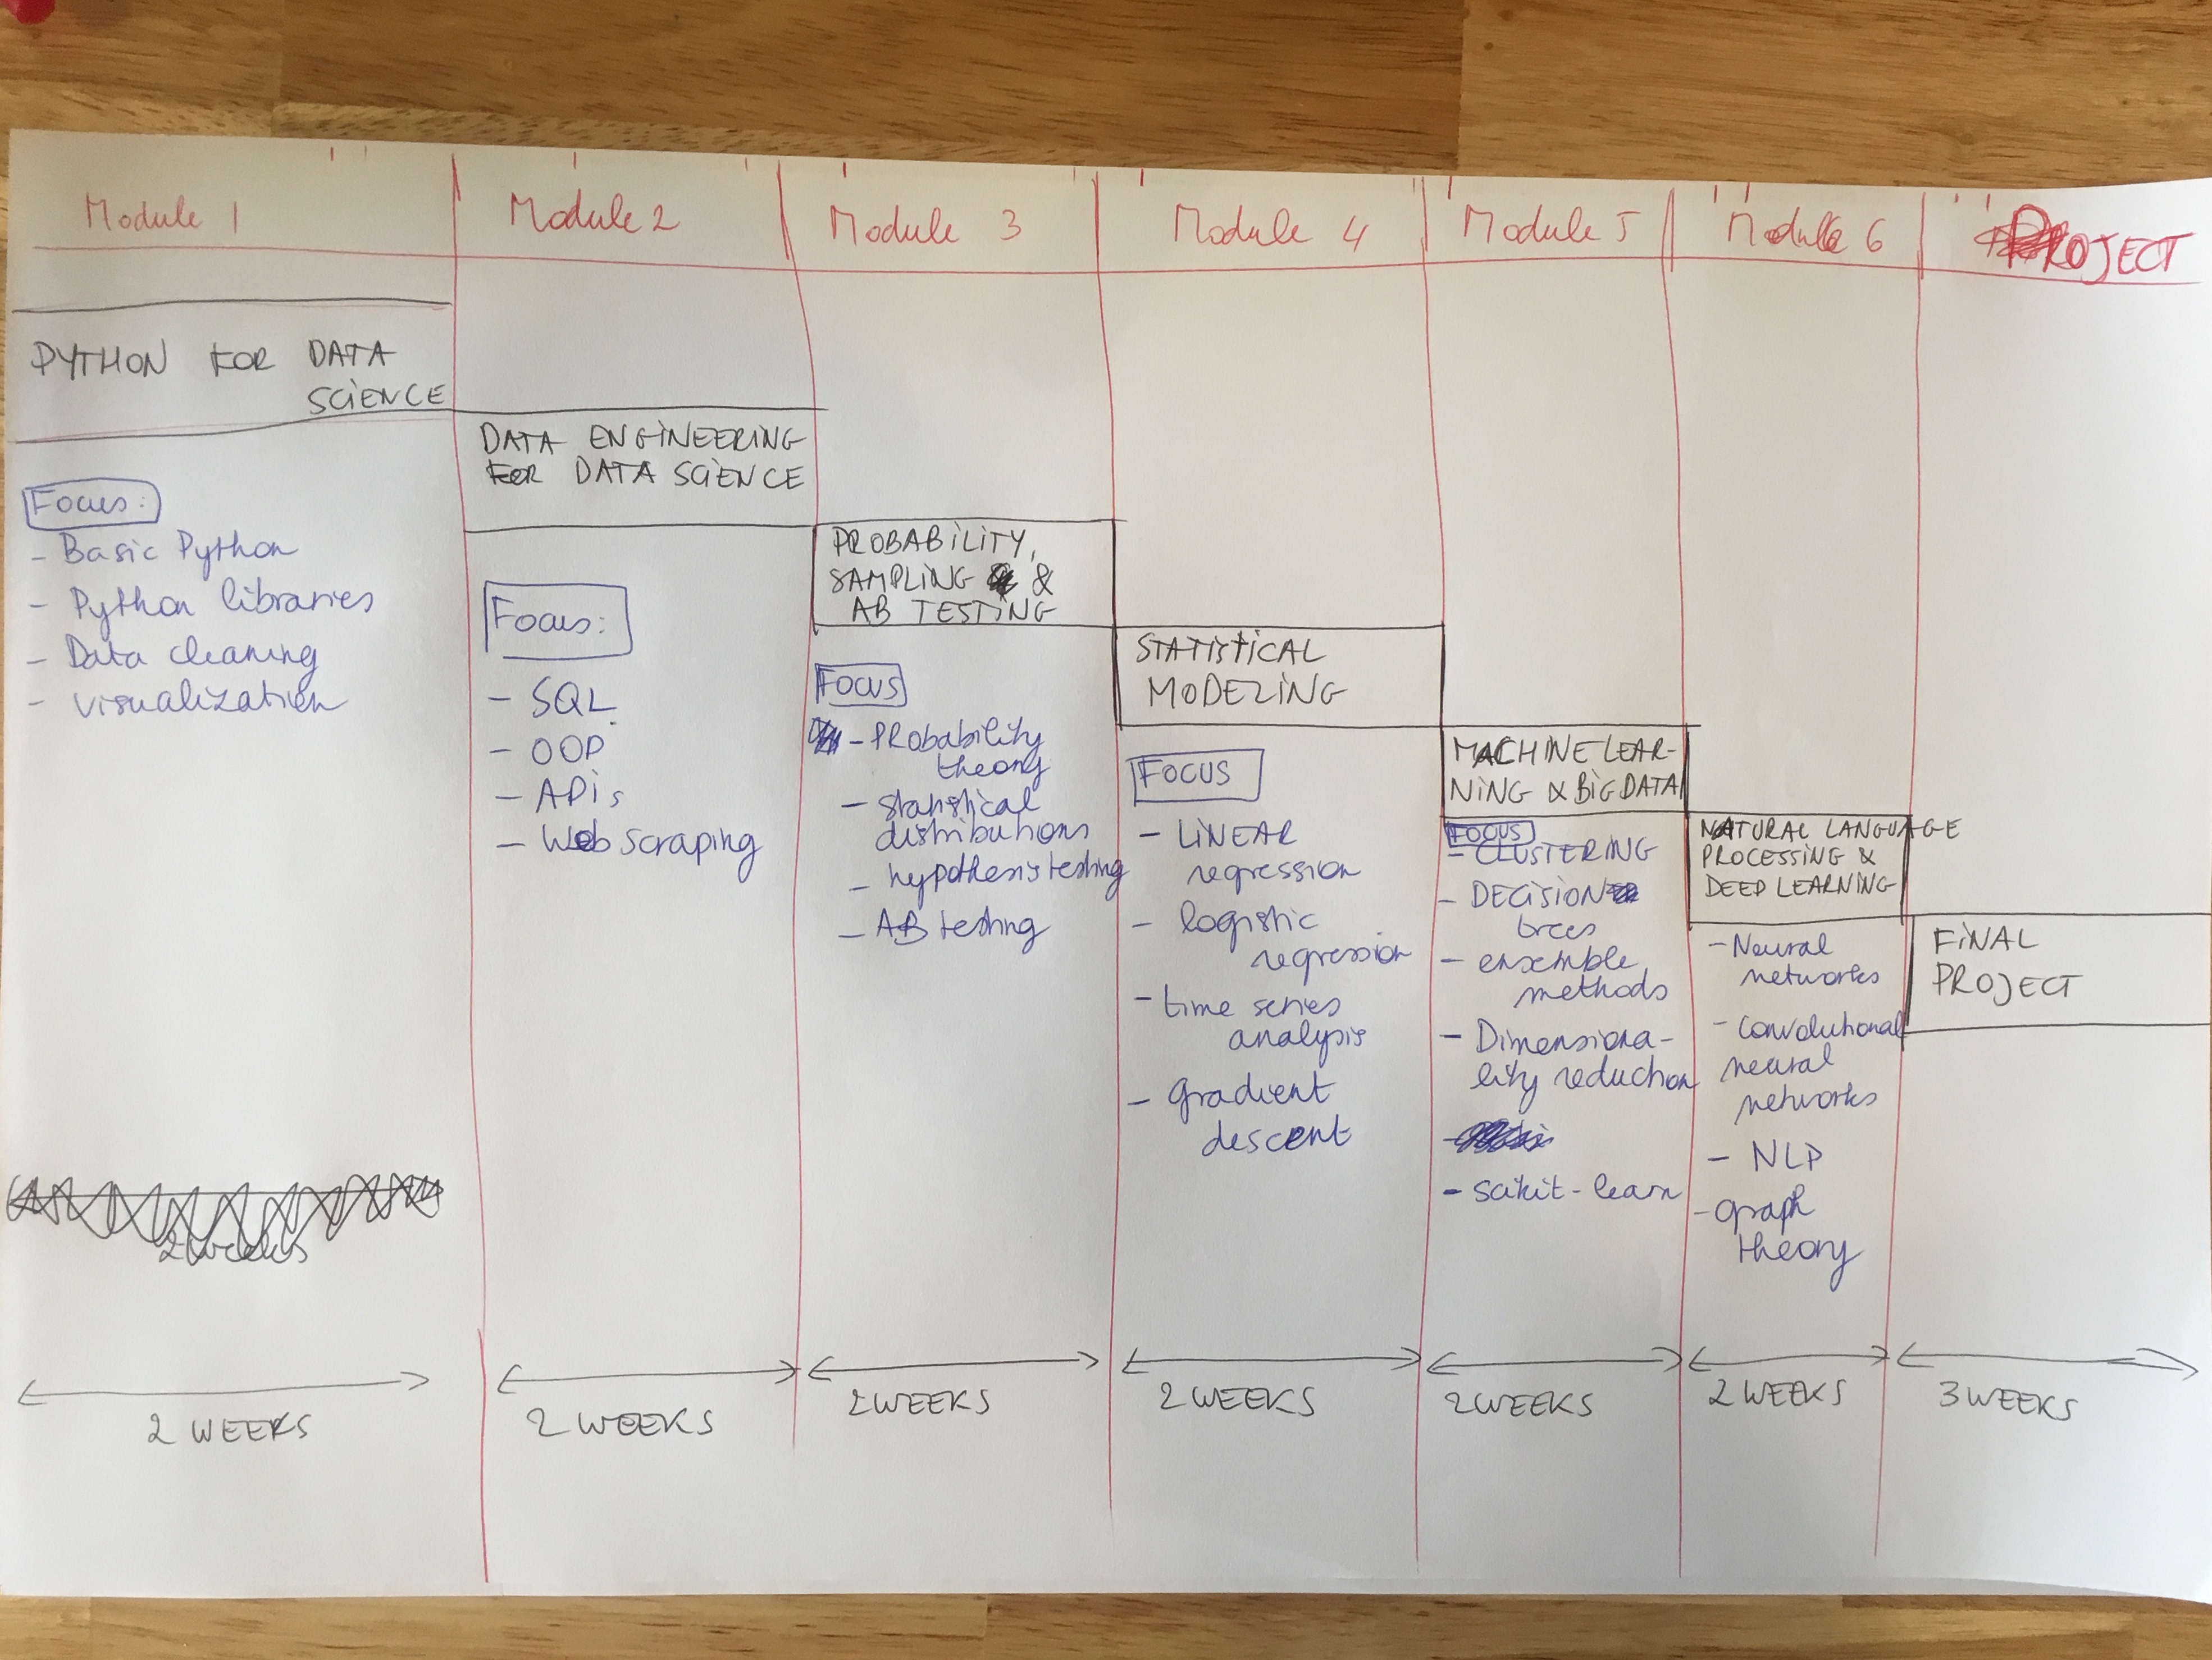 Module 1
PYTHON FOR DATA
SCIENCE
Focus:
- Basic Python
- Python libraries
- Data cleaning
- visualization
2 weeks
2 WEEKS
Module 2
DATA ENGINEERING
FOR DATA SCIENCE
Focus:
- SQL
- OOP
- APIs
- Web scraping
2 WEEKS
Module 3
PROBABILITY,
SAMPLING &
AB TESTING
FOCUS
- PRObability
theory
- statistical
distributions
- hypothesis testing
- AB testing
2 WEEKS
Module 4
STATISTICAL
MODELING
FOCUS
- LINEAR
regression
- logistic
regression
- time series
analysis
- gradient
descent
2 WEEKS
Module 5
MACHINE LEAR-
NING & BIG DATA
FOCUS
- CLUSTERING
- DECISION
trees
- ensemble
methods
- Dimensiona-
lity reduction
- scikit-learn
2 WEEKS
Module 6
NATURAL LANGUAGE
PROCESSING &
DEEP LEARNING
- Neural
networks
- Convolutional
neural
networks
- NLP
- graph
theory
2 WEEKS
PROJECT
FINAL
PROJECT
3 WEEKS